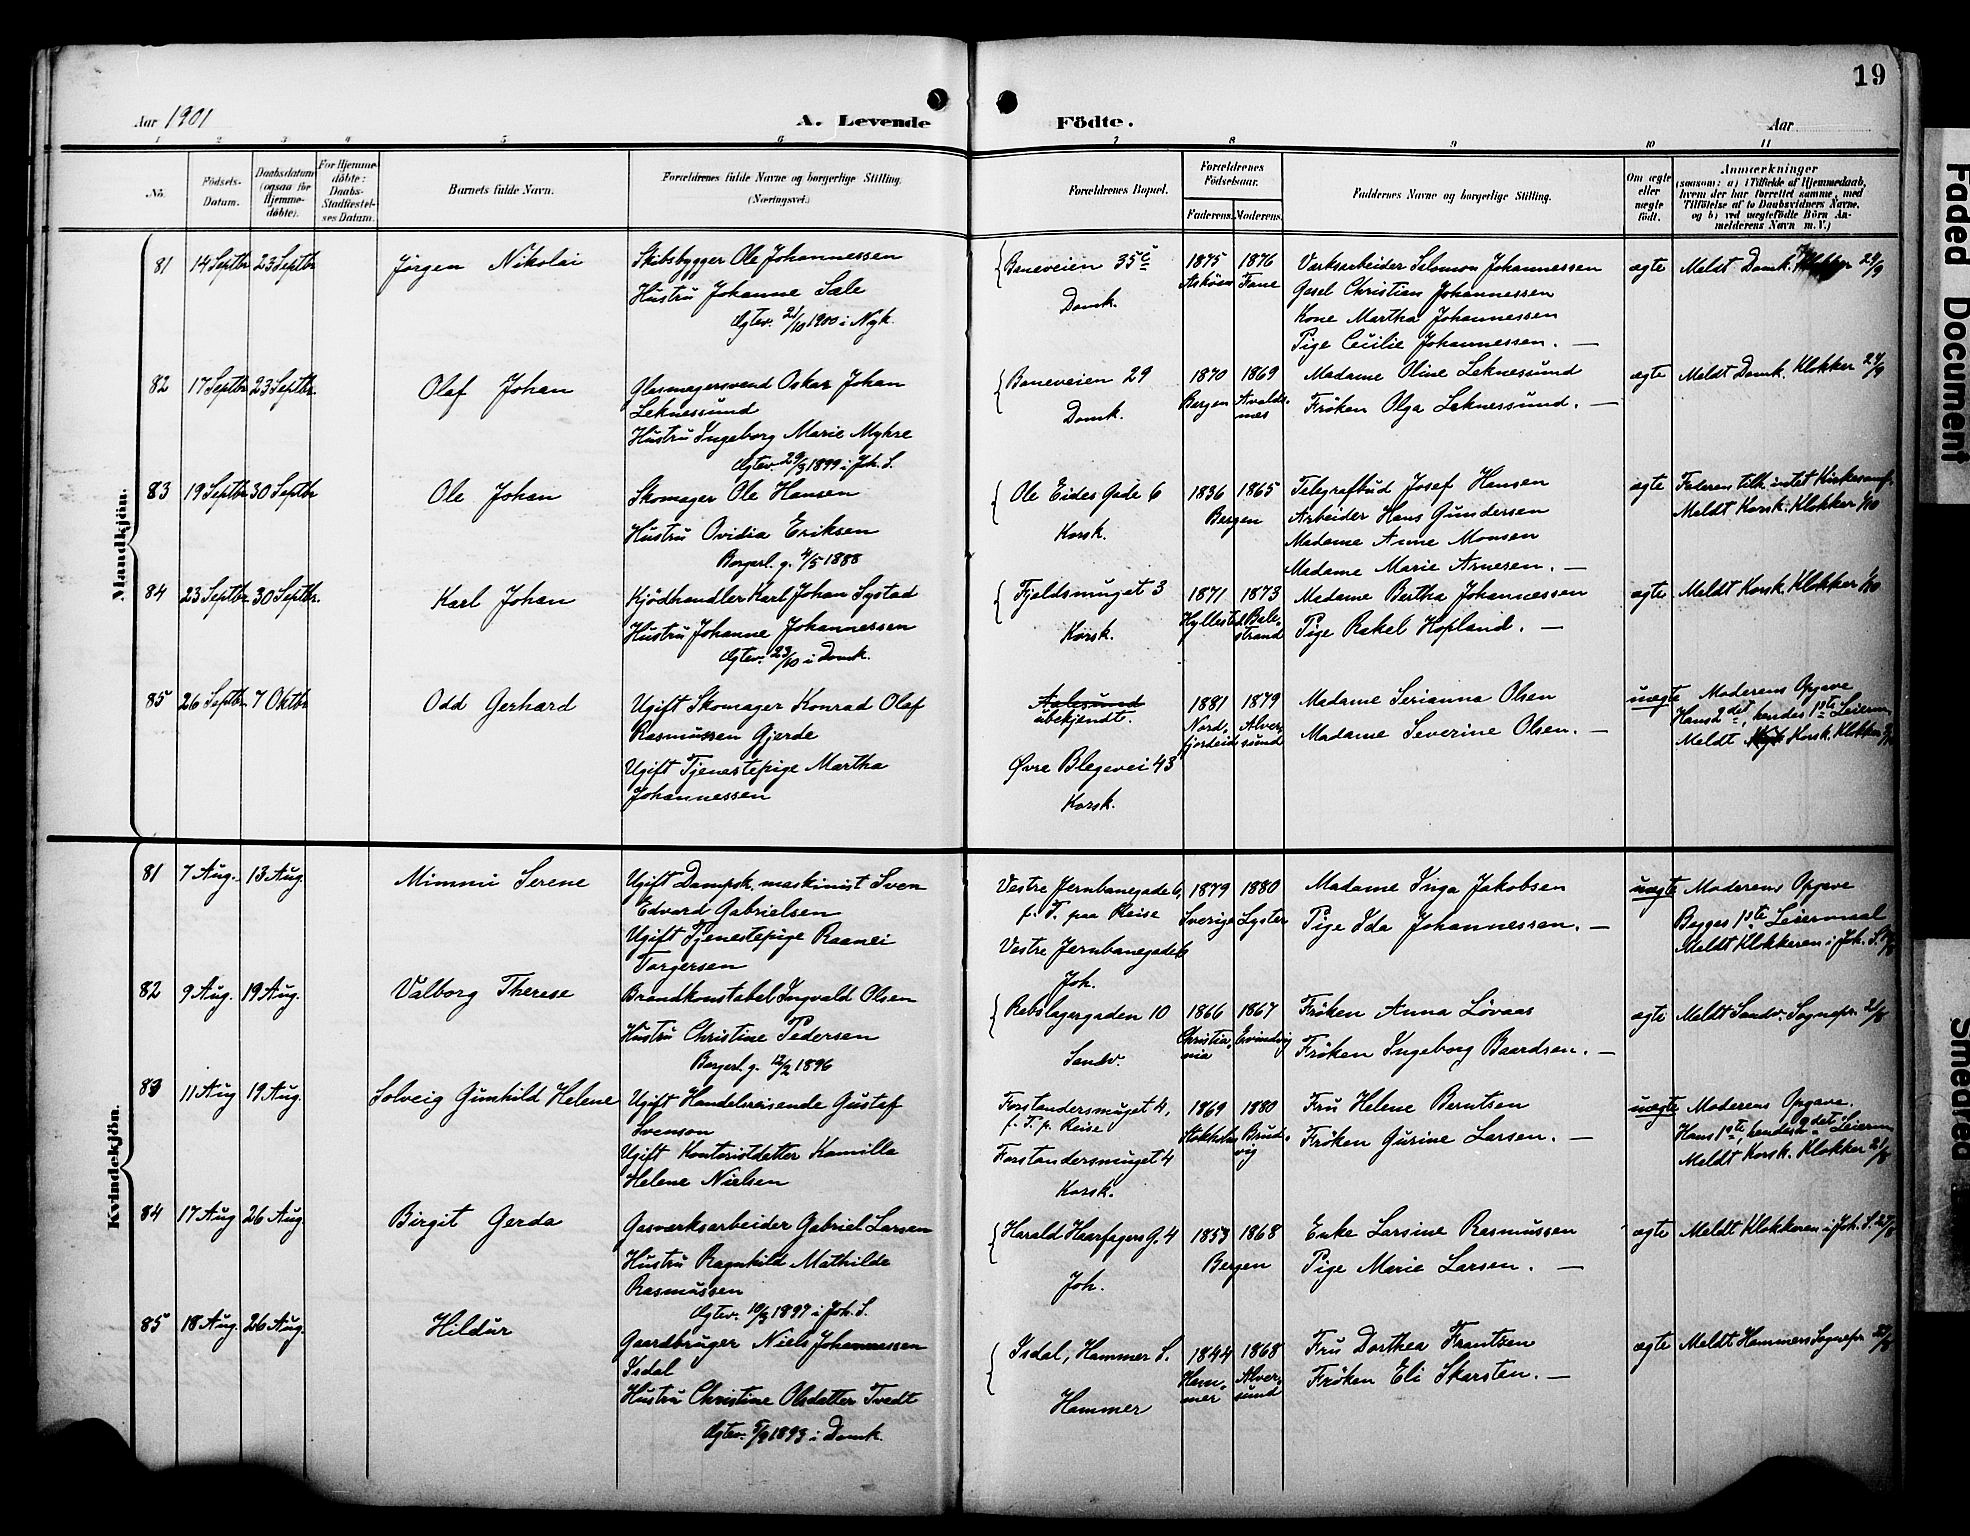 19
Aar 1901
A. Levende Födte.
Aar
1 2 3 4 5 6 7 8 9 10 11
No.
Födsels-Datum.
Daabsdatum (ogsaa for Hjemmedöbte).
For Hjemmedöbte: Daabs-Stadfæstelses Datum.
Barnets fulde Navn.
Forældrenes fulde Navne og borgerlige Stilling. (Næringsvei.)
Forældrenes Bopæl.
Forældrenes Födselsaar.
Faderens. Moderens.
Faddernes Navne og borgerlige Stilling.
Om ægte eller uægte födt.
Anmærkninger
(saasom: a) i Tilfælde af Hjemmedaab, hvem der har forrettet samme, med Tilföielse af to Daabsvidners Navne, og b) ved uægtefödte Börn Anmelderens Navn m.V.)
Mandkjön.
81 14 Septbr 23 Septbr Jørgen Nikolai Skibsbygger Ole Johannessen {Baneveien 35 c 1875 1876 Værksarbeider Salomon Johannessen ægte Meldt Domk. 24/9
Hustru Johanne Sæle Askøen Fane Gasel Christian Johannessen
Domk. Kone Martha Johannessen
Ægtev. 21/10 1900 i Nyk. Pige Cecilie Johannessen. —
82 17 Septbr 23 Septbr. Olaf Johan Glasmagersvend Oskar Johan {Baneveien 29 1870 1869 Madame Oline Leknessund ægte Meldt Domk. Klokker 24/9
Leknessund Domk. Bergen Avaldsnes Frøken Olga Leknessund. —
Hustru Ingeborg Marie Myhre
Ægtev. 29/3 1899 i Joh. S.
83 19 Septbr 30 Septbr Ole Johan Skomager Ole Hansen {Ole Eides Gade 6 1836 1865 Telegrafbud Josef Hansen ægte Faderen tilh. intet Kirkesamf.
Hustru Ovidia Eriksen Korsk. Bergen Arbeider Hans Gundersen Meldt Korsk. Klokker 1/10
Madame Anne Monsen
Borgerl. g. 4/5 1888 Madame Marie Arnesen. —
84 23 Septbr. 30 Septbr. Karl Johan Kjödhandler Karl Johan Systad {Fjeldsmuget 3 1871 1873 Madame Bertha Johannessen ægte Meldt Korsk. Klokker 1/10
Hustru Johanne Johannessen Korsk. Hyllestad Balestrand Pige Rakel Hopland. —
Ægtev. 23/10 i Domk.
85 26 Septbr 7 Oktbr Odd Gerhard Ugift Skomager Konrad Olaf Aalesund 1881 1879 Madame Serianna Olsen uægte Moderens Opgave
Rasmussen Gjerde ubekjendt. Nordfjordeid Alversund Madame Severine Olsen. — Hans 2det, hendes 1ste Leierm.
Ugift Tjenestepige Martha Øvre Blegevei 43 Meldt Korsk. Klokker
Johannessen Korsk.
Kvindekjön.
81 7 Aug. 13 Aug. Mimmi Serene Ugift Dampsk. maskinist Sven Vestre Jernbanegade 6, 1879 1880 Madame Inga Jakobsen uægte Moderens Opgave
Edvard Gabrielsen f. T. paa Reise Sverige Lyster Pige Ida Johannessen. — Begges 1ste Leiermaal
Ugift Tjenestepige Raanei Vestre Jernbanegade 6 Meldt Klokkeren i Joh. S.
Torgersen Joh.
82 9 Aug. 19 Aug. Valborg Therese Brandkonstabel Ingvald Olsen {Rebslagergaden 10 1866 1867 Frøken Anna Lövaas ægte Meldt Sandv. Sognepr. 21/8
Hustru Christine Pedersen Sandv. Christiania Evindvig Frøken Ingeborg Baardsen. —
Borgerl. g. 12/2 1896
83 11 Aug 19 Aug. Solveig Gunhild Helene Ugift Handelsreisende Gustaf Forstandersmuget 4, 1869 1880 Fru Helene Berntsen uægte Moderens Opgave.
Svenson f. T. p. Reise Stokholm Brudvig Frøken Gurine Larsen. — Hans 1ste, hendes 2det Leierm
Ugift Kontoristdatter Kamilla Forstandersmuget 4 Meldt Korsk. Klokker 21/8
Helene Nielsen Korsk.
84 17 Aug 26 Aug. Birgit Gerda Gasværksarbeider Gabriel Larsen {Harald Haarfagers G. 4 1853 1868 Enke Larsine Rasmussen ægte Meldt Klokkeren i Joh. S. 27/8
Hustru Ragnhild Mathilde Joh. Bergen Pige Marie Larsen. —
Rasmussen
Ægtev. 10/3 1897 i Joh. S.
85 18 Aug. 26 Aug. Hildur Gaardbruger Niels Johannessen {Isdal, Hammer S. 1844 1868 Fru Dorthea Frantzen ægte Meldt Hammers Sognepr. 27/8
Isdal Hammer Hammer Alversund Frøken Eli Skarsten. —
Hustru Christine Olsdatter Tvedt
Ægtev. 5/9 1893 i Domk.
Faded Document
Smeared